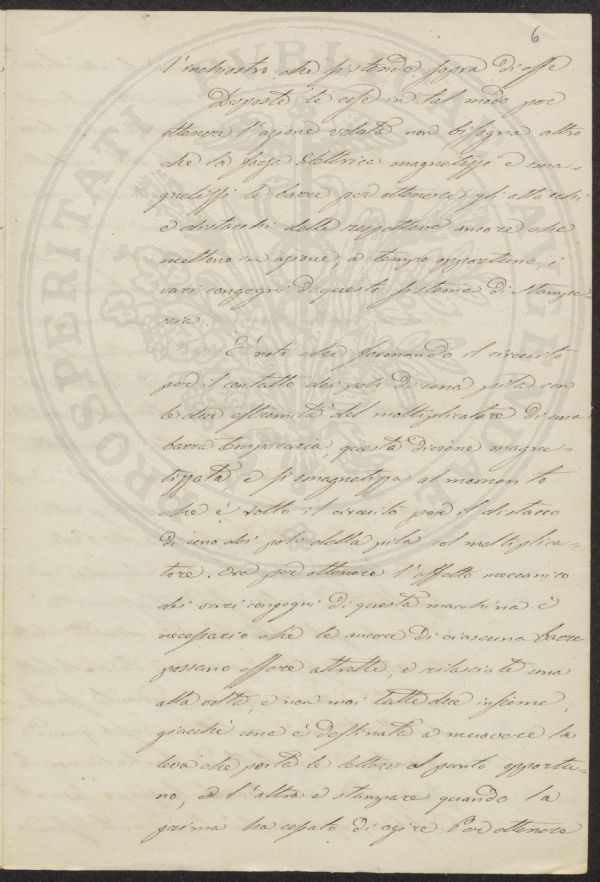 6
l'inchiostro che si stende sopra di esse
Disposte le cose in tal modo per
ottenere l'azione voluta non bisogna altro
che la forza elettrica magnetizzi e sma-
gnetizzi le barre per ottenere gli attacchi
e distacchi delle rispettive ancore che
mettono in azione, a tempo opportuno, i
vari congegni di questo sistema di Stampe-
ria.
È noto che formando il circuito
per il contatto dei poli di una pila con
le due estremità del moltiplicatore di una
barra temporaria, questa diviene magne-
tizzata e si smagnetizza al momento
che è rotto il circuito per il distacco
di uno dei poli della pila col moltiplica-
tore. Ora per ottenere l'effetto meccanico
dei vari congegni di questa macchina è
necessario che le ancore di ciascuna barra
possano essere attratte, e rilasciate una
alla volta, e non mai tutte due insieme,
giacchè una è destinata a muovere la
leva che porta le lettere al punto opportu-
no, e l'altra a stampare quando la
prima ha cessato di agire Per ottenere
PROSPERITATI PVBLICAE AVGENDAE